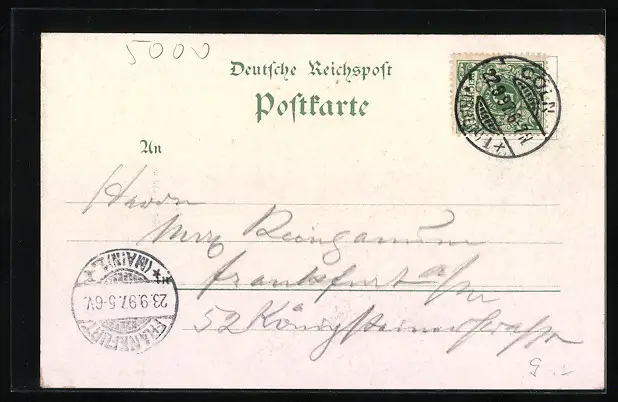 5000
Deutsche Reichspost
Postkarte
CÖLN
An
Herrn
Max Reinganum
Frankfurt a/m
52 Königsteinerstrasse
FRANKFURT
(MAIN) 1.
23.9.97. 5-6V.
9.–